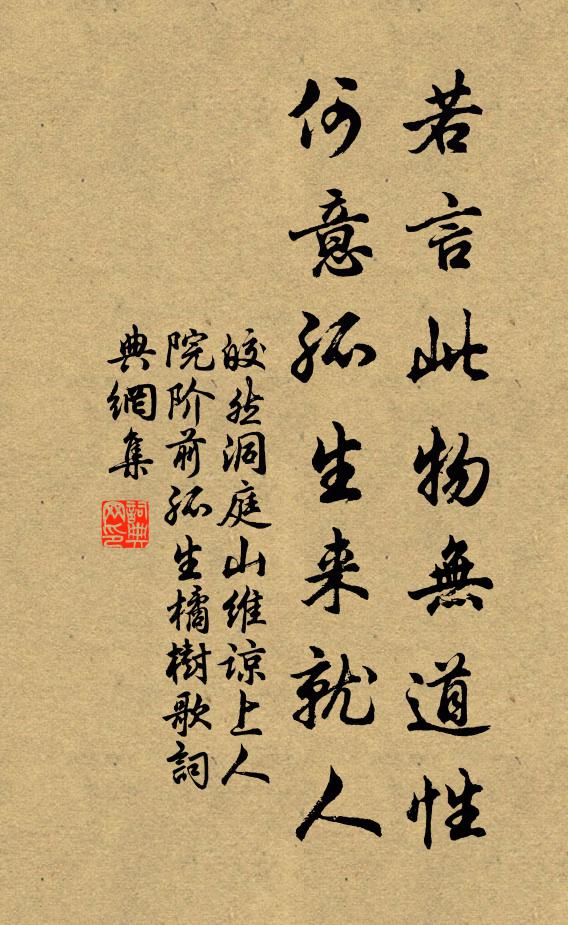 若言此物無道性
何意孤生来就人
皎然洞庭山維諒上人
院阶前孤生橘樹歌詞
典網集
詞典网印